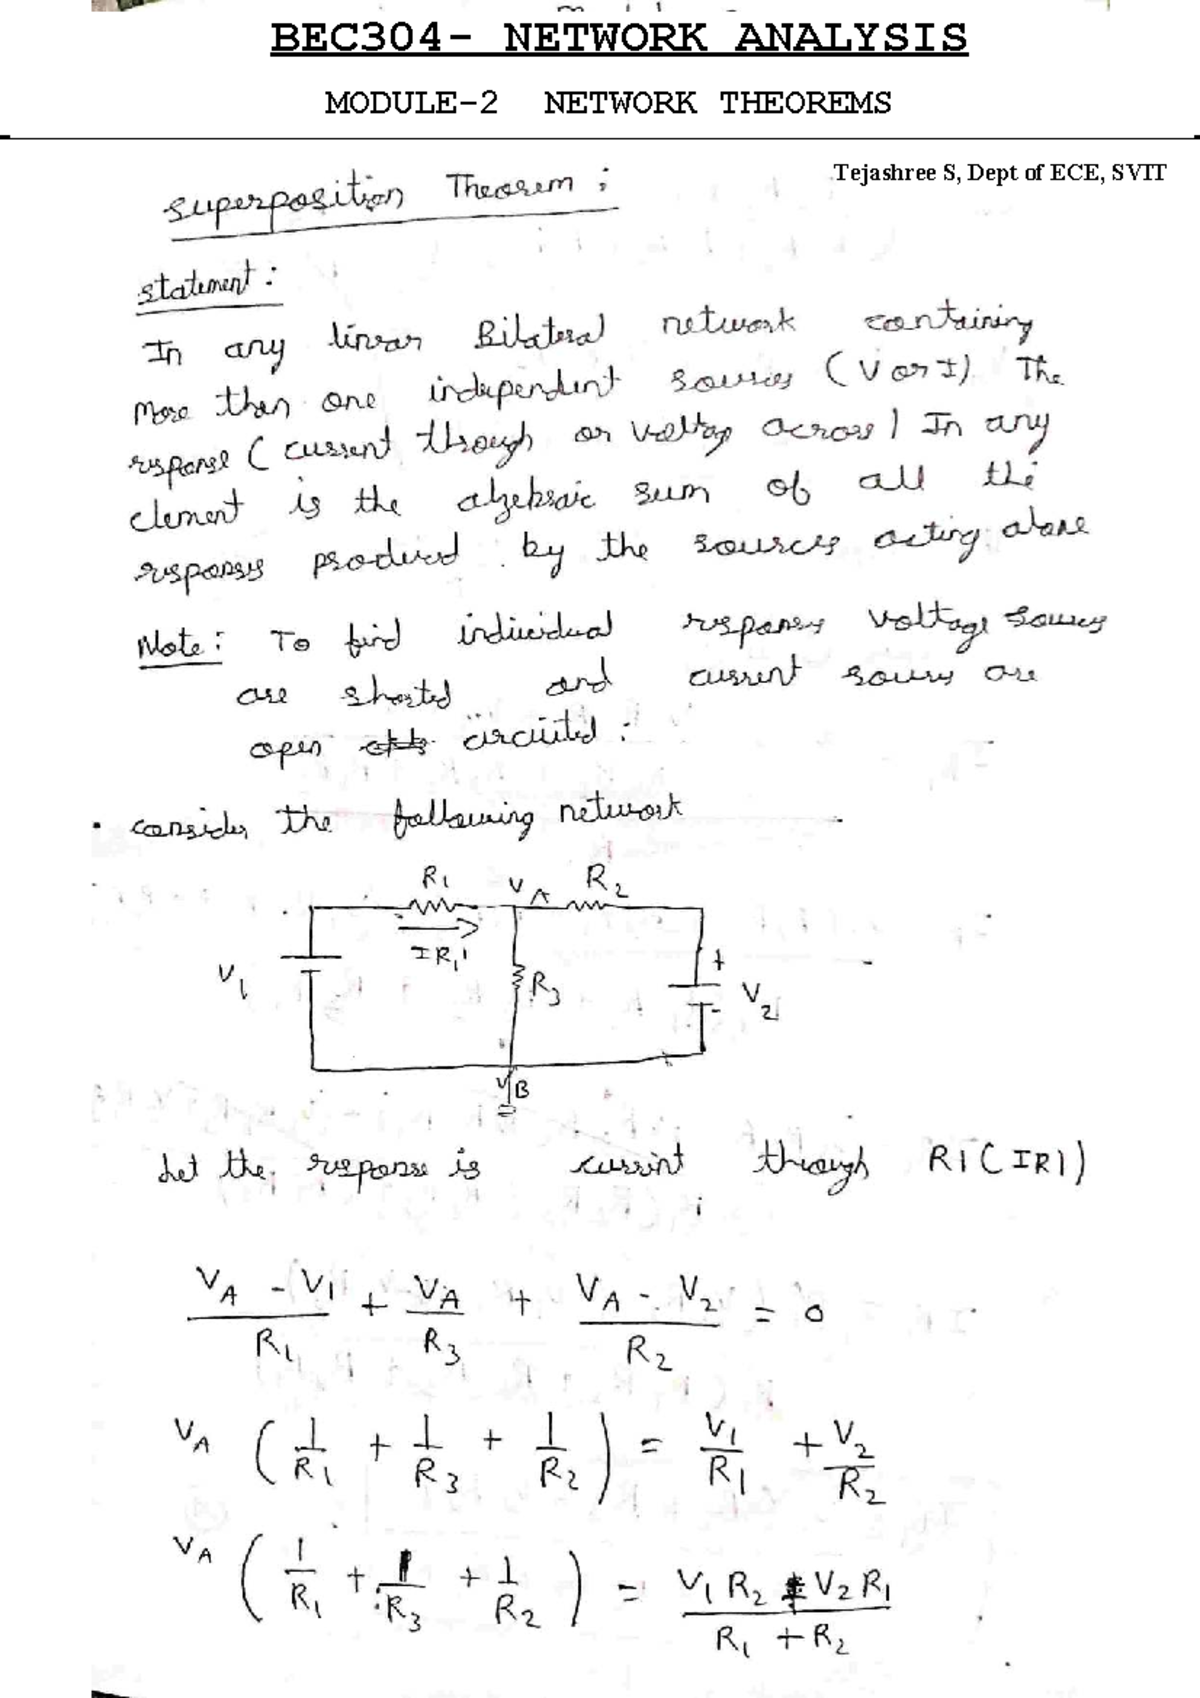 BEC304- NETWORK ANALYSIS
MODULE-2 NETWORK THEOREMS
Tejashree S, Dept of ECE, SVIT
Superposition Theorem :
Statement :
In any linear Bilateral network containing
more than one independent sources (V or I). The
response (current through or voltage across) In any
element is the algebraic sum of all the
responses produced by the sources acting alone
Note : To find individual responses voltage sources
are shorted and current sources are
open circuited :
• consider the following network
R1 VA R2
IR1'
V1 R3 + V2 -
VB
Let the response is current through R1(IR1)
VA - V1 / R1 + VA / R3 + VA - V2 / R2 = 0
VA (1/R1 + 1/R3 + 1/R2) = V1/R1 + V2/R2
VA (1/R1 + 1/R3 + 1/R2) = V1 R2 + V2 R1 / R1 + R2